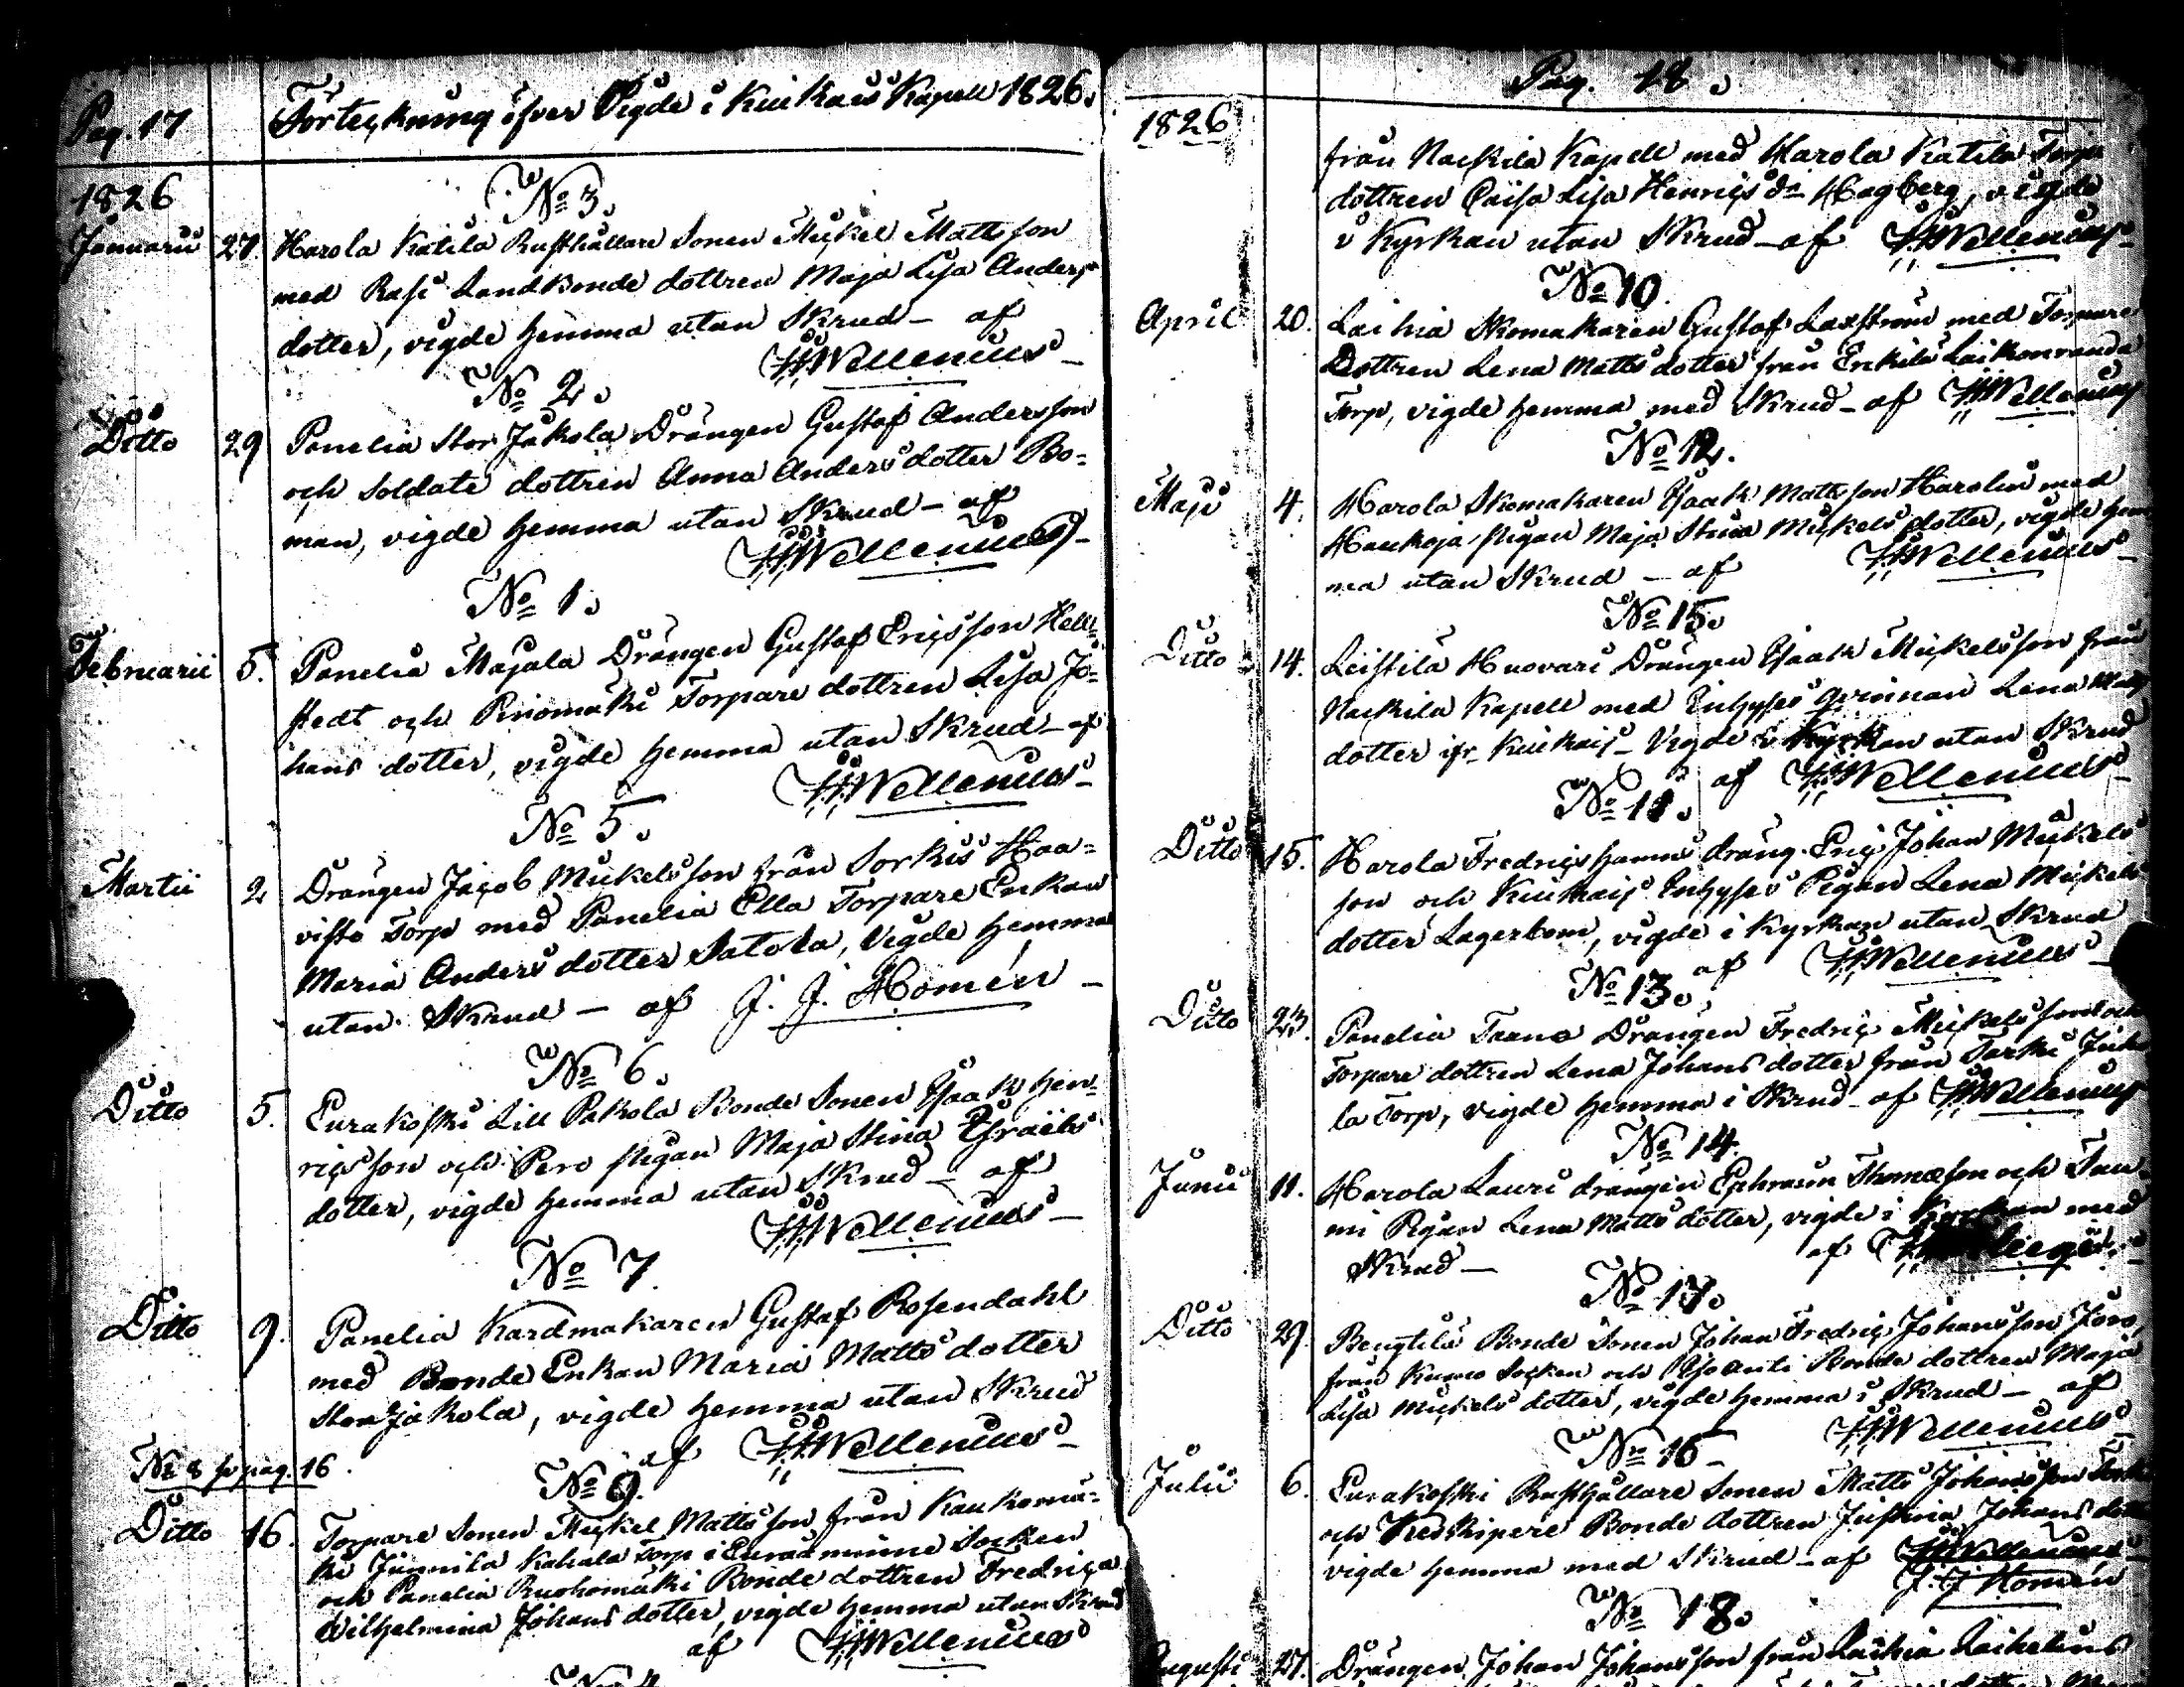 Pag. 17
Förteckning öfver Vigde i Kiukais Kapell 1826.
1826
No 3.
Januarii 27. Harola Katila Rusthållare Sonen Mickel Mattsson
med Rasi Landbonde dottren Maja Lisa Anders
dotter, vigde hemma utan Skrud - af
HWellenius
No 2.
Ditto 29 Panelia Stor Jakola Drängen Gustaf Andersson
och Soldate dottren Anna Anders dotter Bo=
man, vigde hemma utan Skrud - af
HWellenius
No 1.
Februarii 5. Panelia Majala Drängen Gustaf Ericsson Hell=
stedt och Torpare dottren Lisa Jo=
hans dotter, vigde hemma utan Skrud - af
HWellenius
No 5.
Martii 2 Drängen Jacob Mickelsson från Sorkis Haa=
visto Torp med Panelia Ella Torpare Enkan
Maria Anders dotter Satola, Vigde hemma
utan Skrud - af J. J. Homén
No 6.
Ditto 5. Eurakoski Lill Pakola Bonde Sonen Isaak Hen=
ricsson och Pero Pigan Maja Stina Israels
dotter, vigde hemma utan Skrud - af
HWellenius
No 7
Ditto 9. Panelia Kardmakaren Gustaf Rosendahl
med Bonde Enkan Maria Matts dotter
Stor Jakola, vigde hemma utan Skrud
af HWellenius
No 8 pag. 16
No 9.
Ditto 16. Torpare Sonen Mickel Mattsson från
Kahala Torp i Euraåminne Socken
och Panelia Ruohomäki Bonde dottren Fredrica
Wilhelmina Johans dotter, vigde hemma utan Skrud
af HWellenius
No 4
Pag. 18.
1826
från Nackila Kapell med Harola Katila Torpa
dottren Caisa Lisa Henrics dr Hagberg, vigde
i Kyrkan utan Skrud - af HWellenius
No 10.
April 20. Laihia Skomakaren Gustaf Laxström med Torpare
Dottren Lena Matts dotter från Enkila
Torp, vigde hemma med Skrud - af HWellenius
No 12.
Maji 4. Harola Skomakaren Isaak Mattsson Harolin med
Haukoja Pigan Maja Stina Mickels dotter, vigde hem
ma utan Skrud - af HWellenius
No 15.
Ditto 14. Leistila Huovari Drängen Isaak Mickelsson från
Nackila Kapell med Inhyses qvinnan Lena Matts
dotter ifr. Kiukais - Vigde i Kyrkan utan Skrud
af HWellenius
No 11.
Ditto 15. Harola Fredrics hamns dräng Eric Johan Mickels
son och Kiukais Inhyses Pigan Lena Mickels
dotter Lagerbom, vigde i Kyrkan utan Skrud
af HWellenius
No 13.
Ditto 23. Panelia Tanno Drängen Fredric Mickelsson och
Torpare dottren Lena Johans dotter från
la Torp, vigde hemma i Skrud - af HWellenius
No 14.
Junii 11. Harola Lauri drängen Ephraim Thomasson och
mi Pigan Lena Matts dotter, vigde i Kyrkan med
Skrud - af
No 17.
Ditto 29. Bengtila Bonde Sonen Johan Fredric Johansson
från Kumo Socken och Bonde dottren Maja
Lisa Mickels dotter, vigde hemma i Skrud - af
HWellenius
No 16
Julii 6. Eurakoski Rusthållare Sonen Matts Johansson
och Köskipere Bonde dottren Justina Johans dotter
vigde hemma med Skrud - af HWellenius
J. J. Homén
No 18.
Augusti 27. Drängen Johan Johansson från Laihia